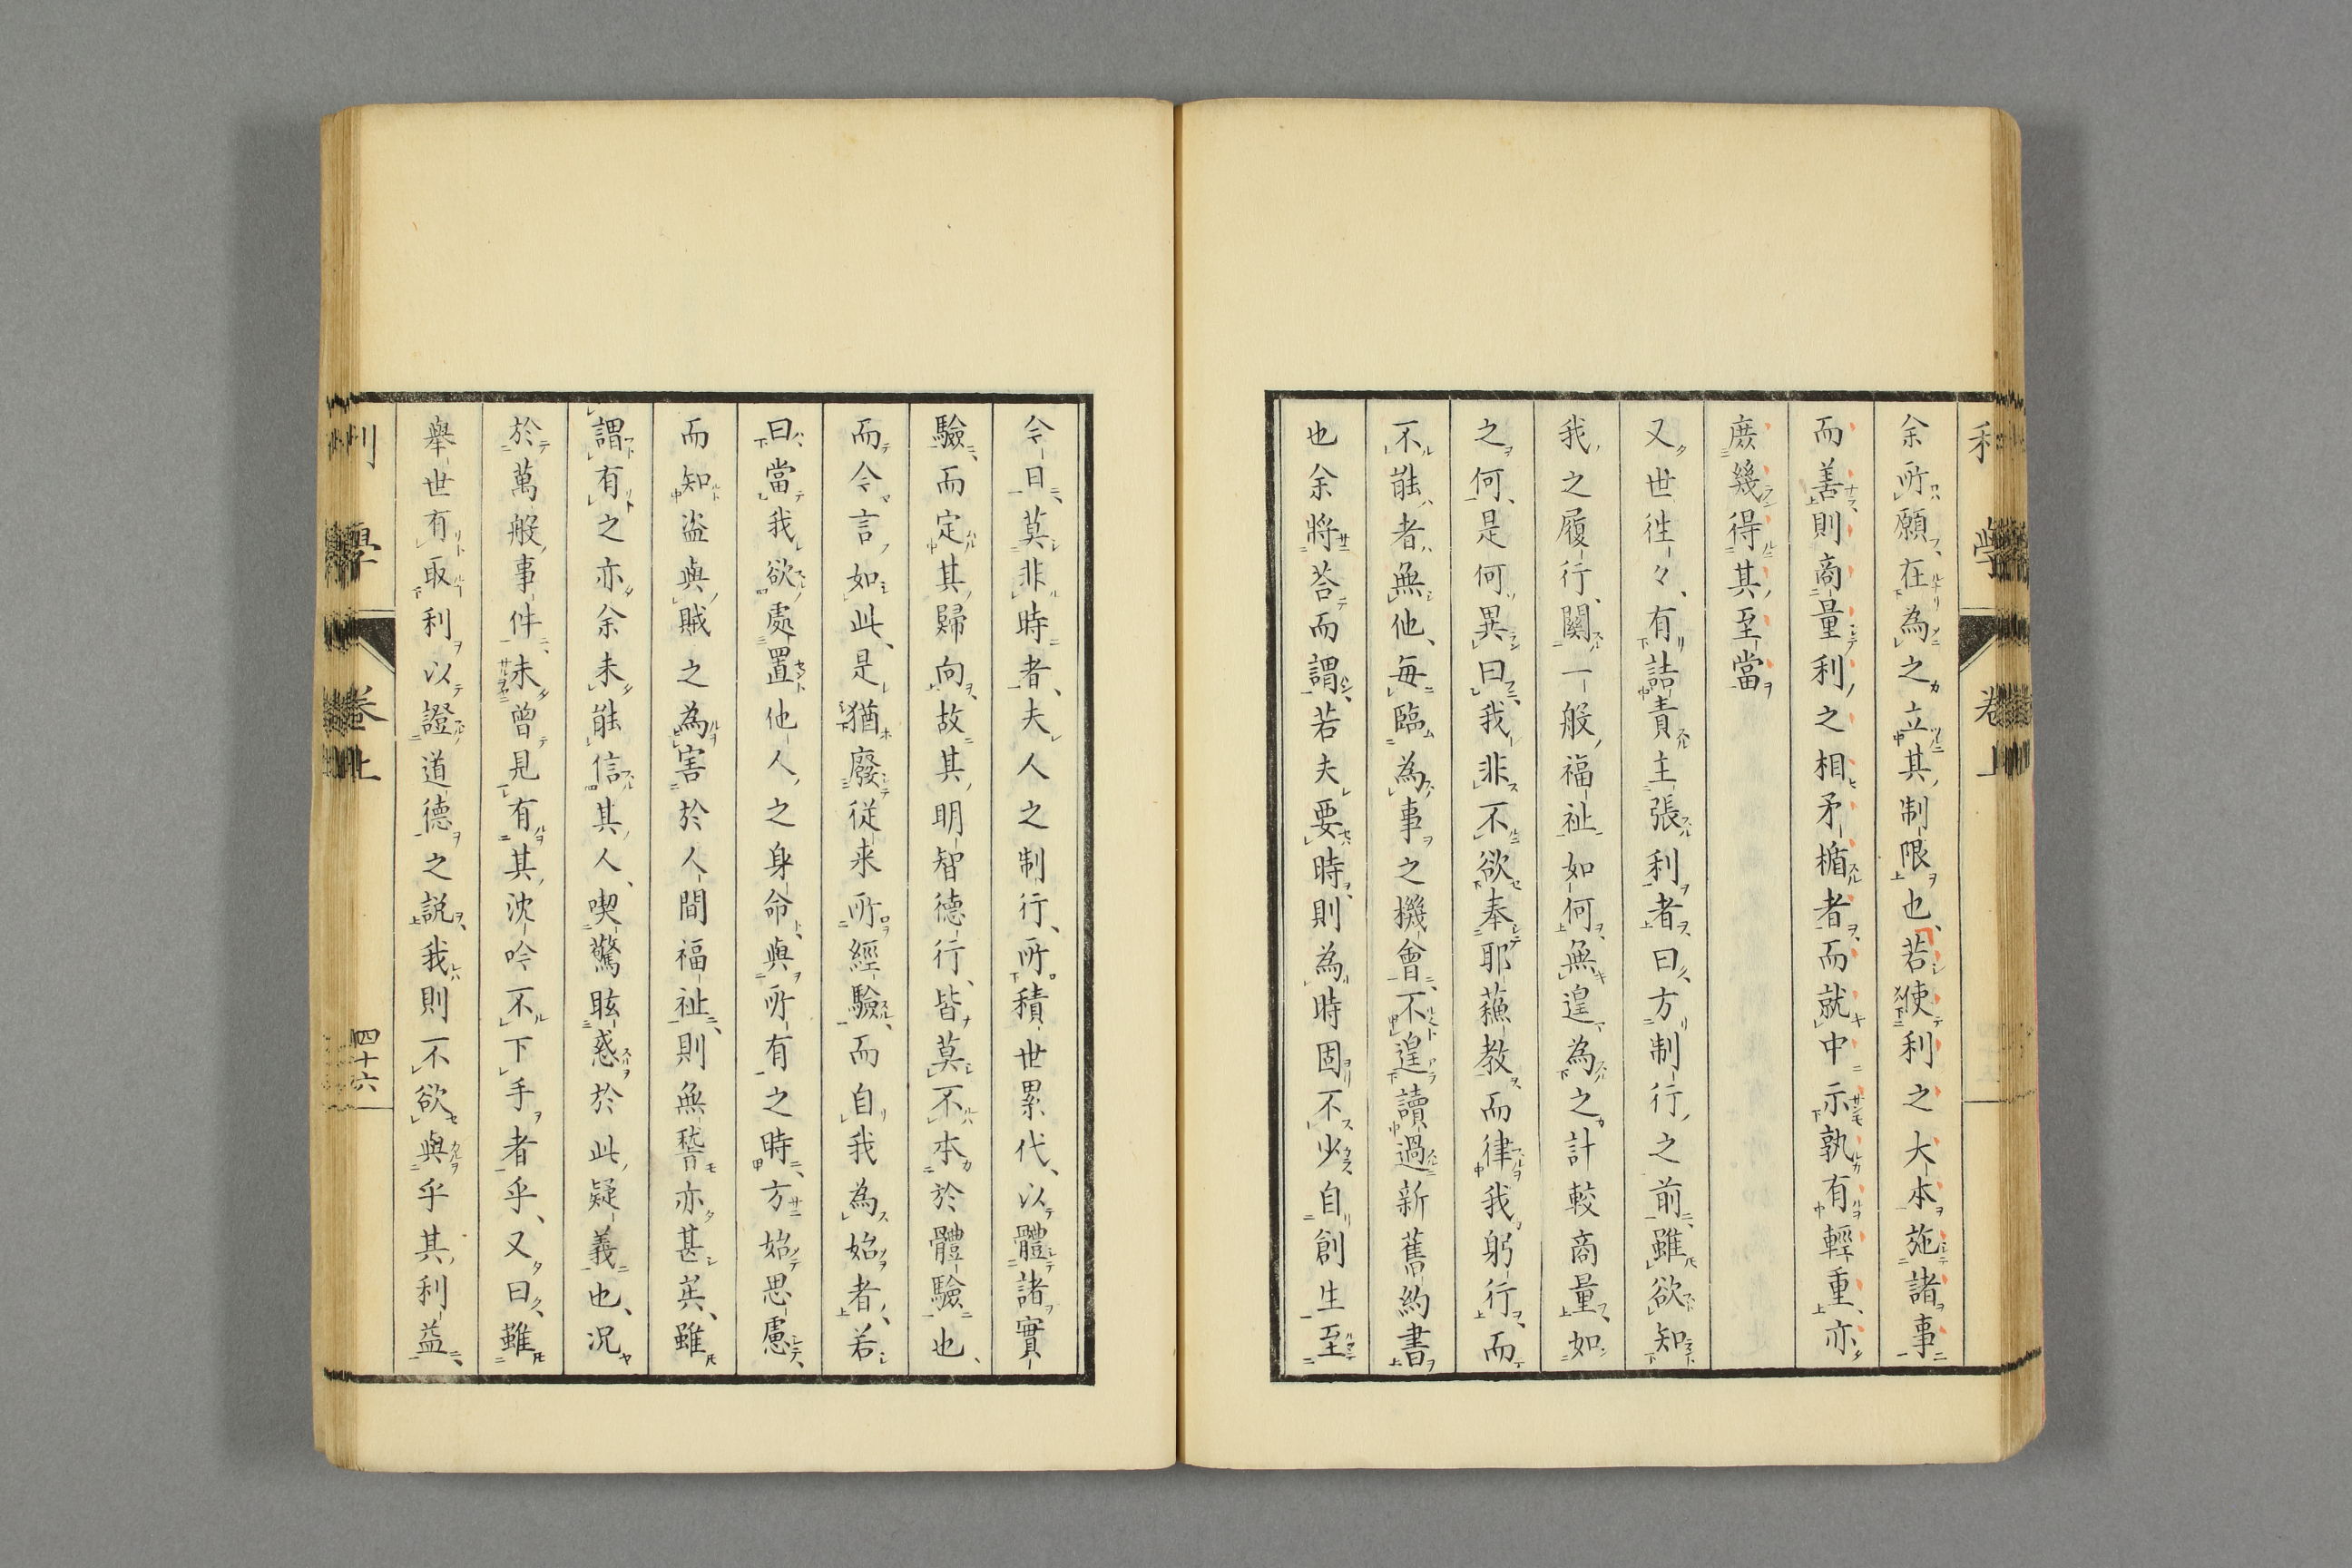 余所願在為之立其制限也、若使利之大本施諸事
而善則商量利之相矛楯者而就中示孰有輕重、亦
庶幾得其至當
又世徃々、有詰責主張利者曰方制行之前雖欲知
我之履行、關一般福祉如何無遑為之計較商量如
之何、是何異曰我非不欲奉耶蘓教而律我躬行而
不能者無他、每臨為事之機會不遑讀過新舊約書
也余將荅而謂若夫要時則為時固不少自創生至
今日莫非時者、夫人之制行、所積世累代、以體諸實
驗而定其歸向故其明智德行、皆莫不本於體驗也、
而今言如此、是猶廢從来所經驗而自我為始者、若
曰當我欲處置他人之身命與所有之時方始思慮
而知盜與賊之為害於人間福祉則無稽亦甚矣、雖
謂有之亦余未能信其人、喫驚眩惑於此疑義也、况
於萬般事件未曾見有其沈吟不下手者乎、又曰雖
舉世有取利以證道德之説我則不欲與乎其利益
利學 卷上 四十六